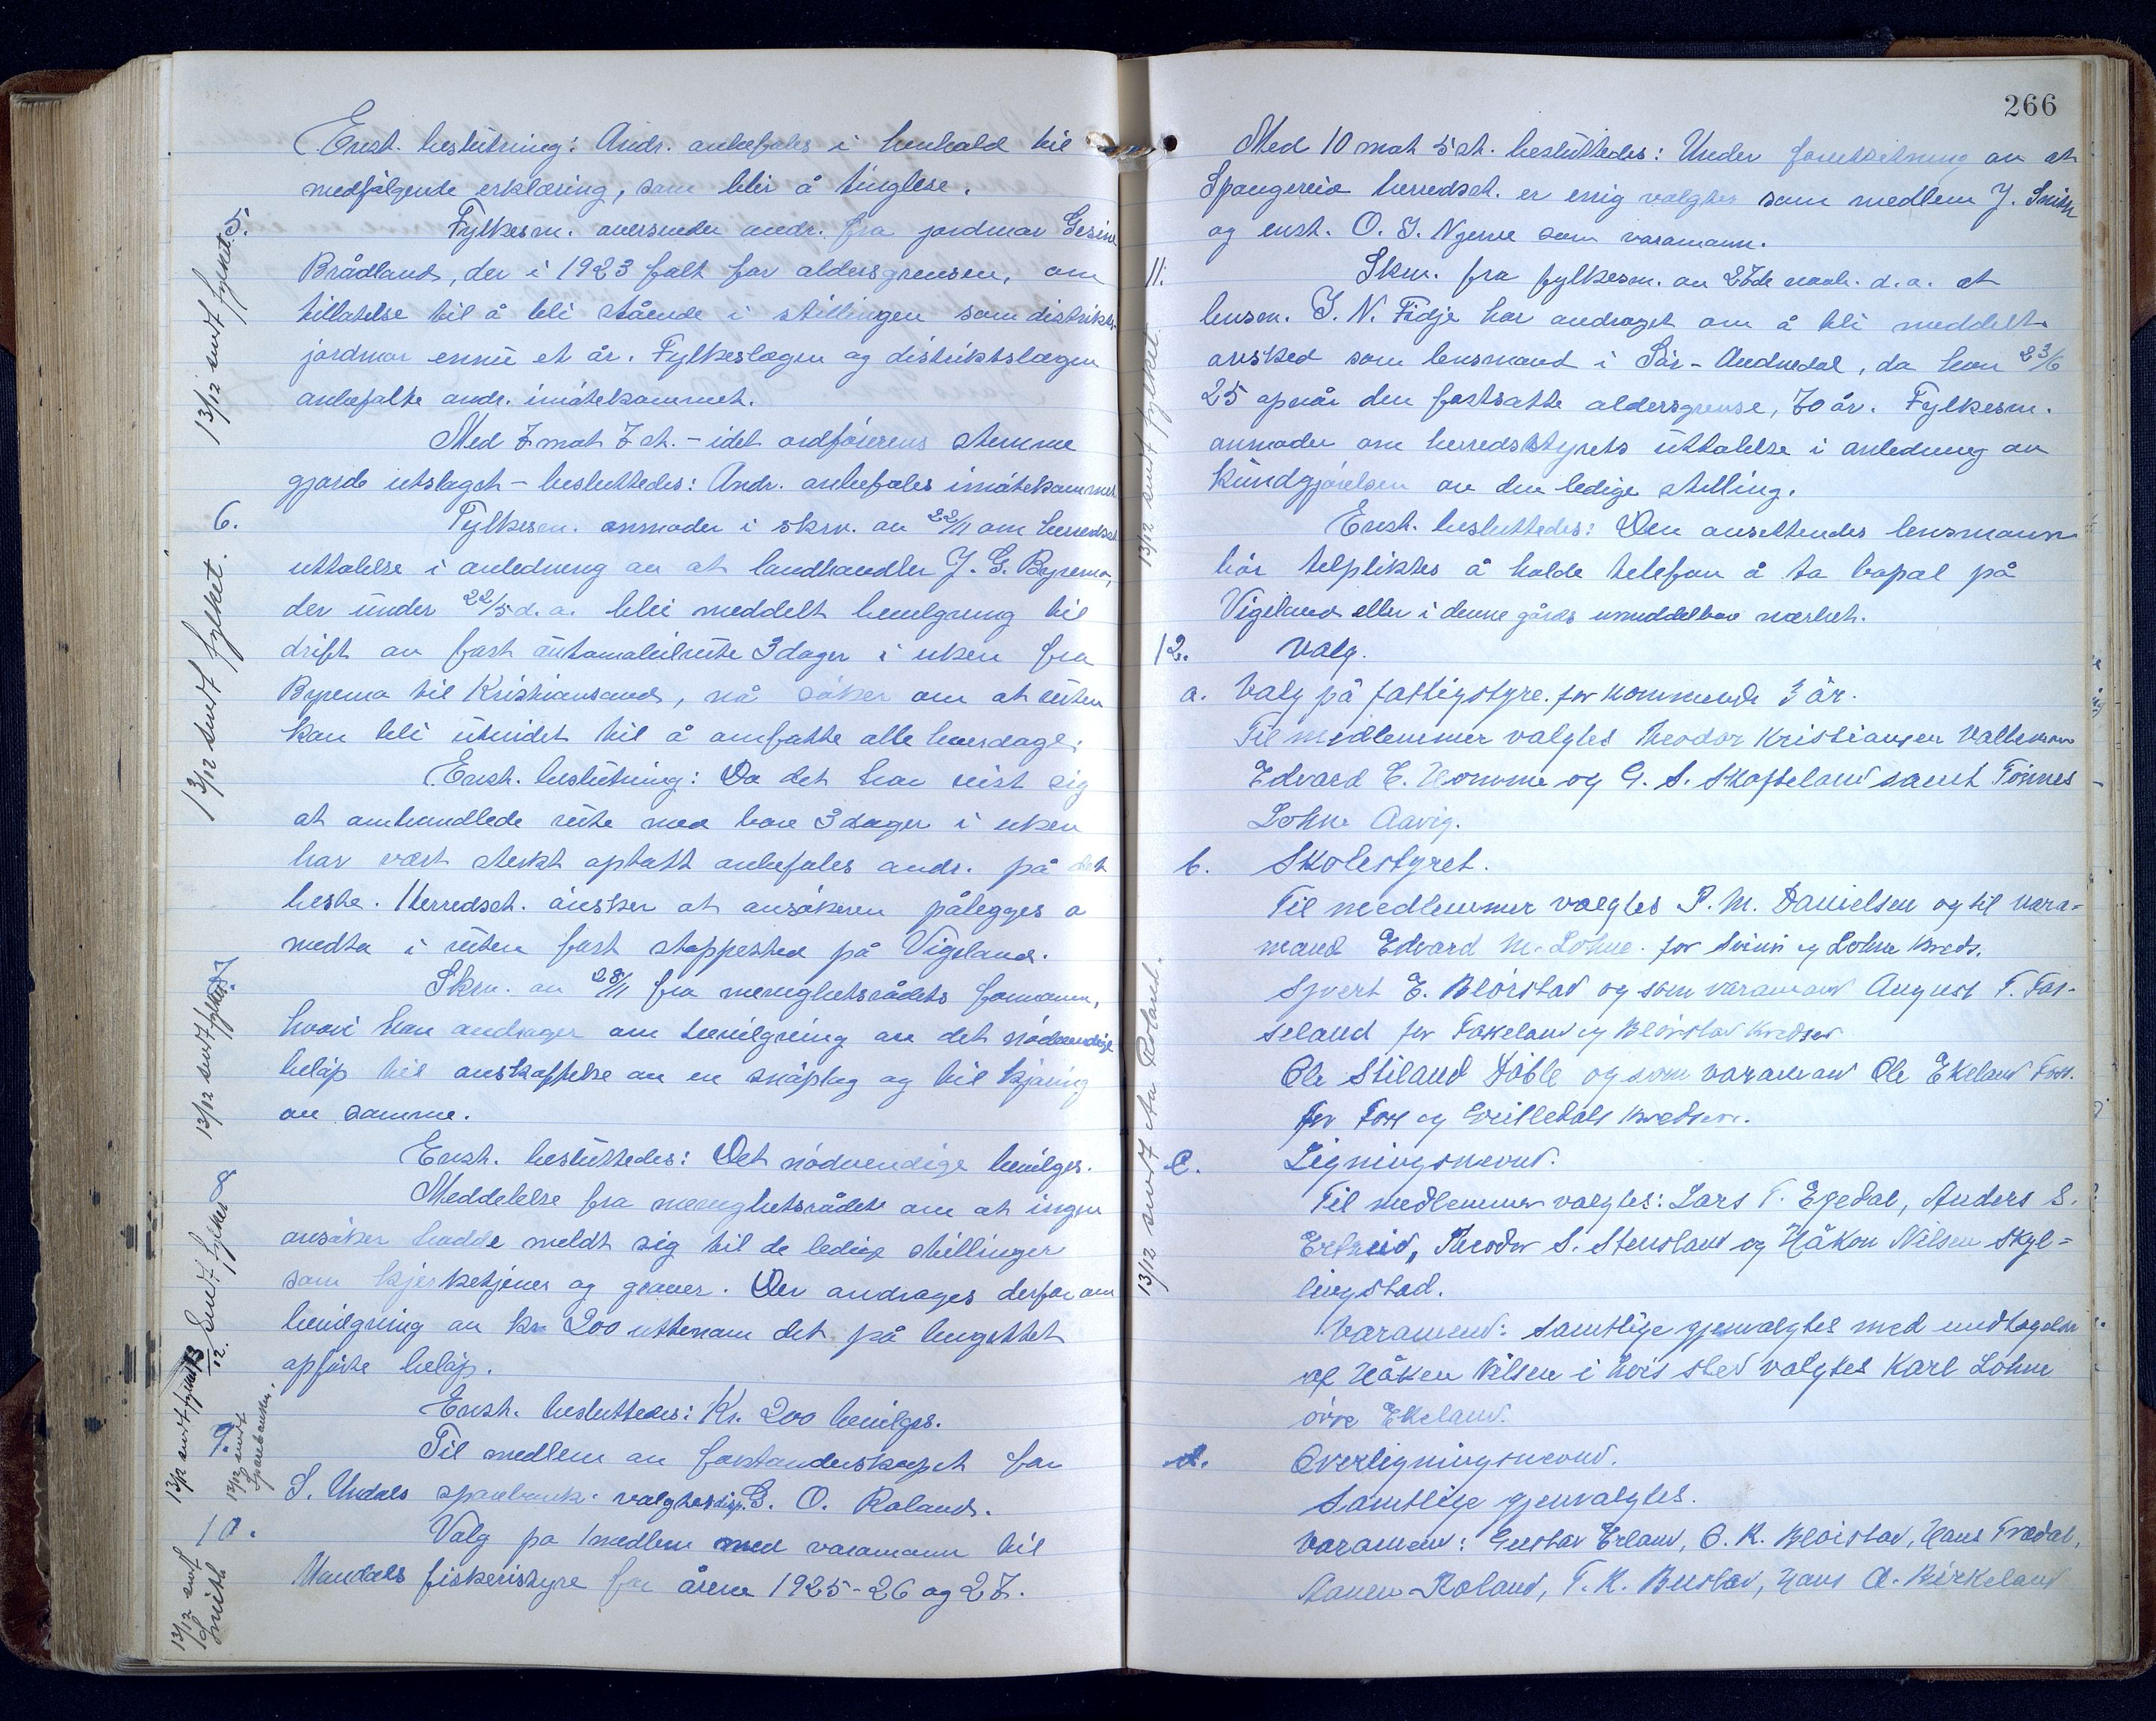 Enst. beslutning: Andr. anbefales i henhold til
medfölgende erklæring, som blir å tinglese.
5. Fylkesm. oversender andr. fra jordmor Gesine
Brådland, der i 1923 falt for aldersgrensen, om
tillatelse til å bli stående i stillingen som distrikts-
jordmor ennu et år. Fylkeslægen og distriktslægen
anbefalte andr. imötekommet.
Med 7 mot 7 st. - idet ordförerens stemme
gjorde utslaget - besluttedes: Andr. anbefales imötekommet.
6. Fylkesm. anmoder i skrv. av 22/11 om herredsst.
uttalelse i anledning av at landhandler J. G. Byremo,
der under 22/5 d.a. blei meddelt bevilgning til
drift av fast automobilrute 3 dager i uken fra
Byremo til Kristiansand, nå söker om at ruten
kan bli utvidet til å omfatte alle hverdage.
Enst. beslutning: Da det har vist sig
at omhandlede rute med bare 3 dager i uken
har vært sterkt optatt anbefales andr. på det
beste. Herredsst. önsker at ansökeren pålegges å
medta i ruten fast stoppested på Vigeland.
7. Skrv. av 28/11 fra menighetsrådets formann,
hvori han andrager om bevilgning av det nödvendige
belöp til anskaffelse av en snöplog og til kjöring
av samme.
Enst. besluttedes: Det nödvendige bevilges.
8 Meddelelse fra menighetsrådet om at ingen
ansöker hadde meldt sig til de ledige stillinger
som kjerketjener og graver. Der andrages derfor om
bevilgning av kr 200 uttenom det på budgettet
opförte belöp.
Enst. besluttedes: Kr. 200 bevilges.
9. Til medlem av forstanderskapet for
S. Undals sparebank valgtes disp. G. O. Roland.
10. Valg på 1 medlem med varamann til
Mandals fiskeristyre for årene 1925-26 og 27.
13/12 sendt fylket
13/12 sendt fylket.
13/12 sendt fylket
13/12 sendt fylket
13/12 sendt
13/12 sendt
Sparebanken.
13/12 sendt
Smith
266
Med 10 mot 5 st. besluttedes: Under forutsetning av at
Spangereid herredsst. er enig valgtes som medlem J. Smith
og enst. O. J. Njerve som varamann.
11. Skrv. fra fylkesm. av 27de novb. d.a. at
lensm. J. N. Fidje har andraget om å bli meddelt
avsked som lensmand i Sör-Audnedal, da han 23/6
25 opnår den fastsatte aldersgrense, 70 år. Fylkesm.
anmoder om herredsstyrets uttalelse i anledning av
kundgjörelsen av den ledige stilling.
Enst. besluttedes: Den ansettendes lensmann
bör tilpliktes å holde telefon å ta bopæl på
Vigeland eller i denne gårds umiddelbare nærhet.
12. Valg.
a. Valg på fattigstyre for kommende 3 år.
Til medlemmer valgtes Theodor Kristiansen Valle
Edvard E. Homme og G. S. Skofteland samt Tönnes
Lohne Aavig.
b. Skolestyret.
Til medlemmer valgtes P. M. Danielsen og til vara-
mand Edvard M. Lohne for Svinör og Lohne kreds.
Syvert E. Blörstad og som varamand August T. Fas-
seland for Fasseland og Blörstad kredser
Ole Stiland Döble og som varamand Ole Ekeland Foss.
for Foss og kredser.
c. Ligningsnevnd.
Til medlemmer valgtes: Lars T. Egedal, Anders S.
Ertzeid, Theodor S. Stensland og Håkon Nilsen Skyl-
lingstad.
Varamend: samtlige gjenvalgtes med undtagelse
af Håken Nilsen i hvis sted valgtes Karl Lohne
övre Ekeland.
d. Overligningsnevnd.
Samtlige gjenvalgtes.
Varamend: Gustav Erland, O. K. Bloistad, Hans Trædal,
Aanen Roland, T. K. Bustad, Hans A. Birkeland
13/12 sendt fylket.
13/12 sendt Roland.